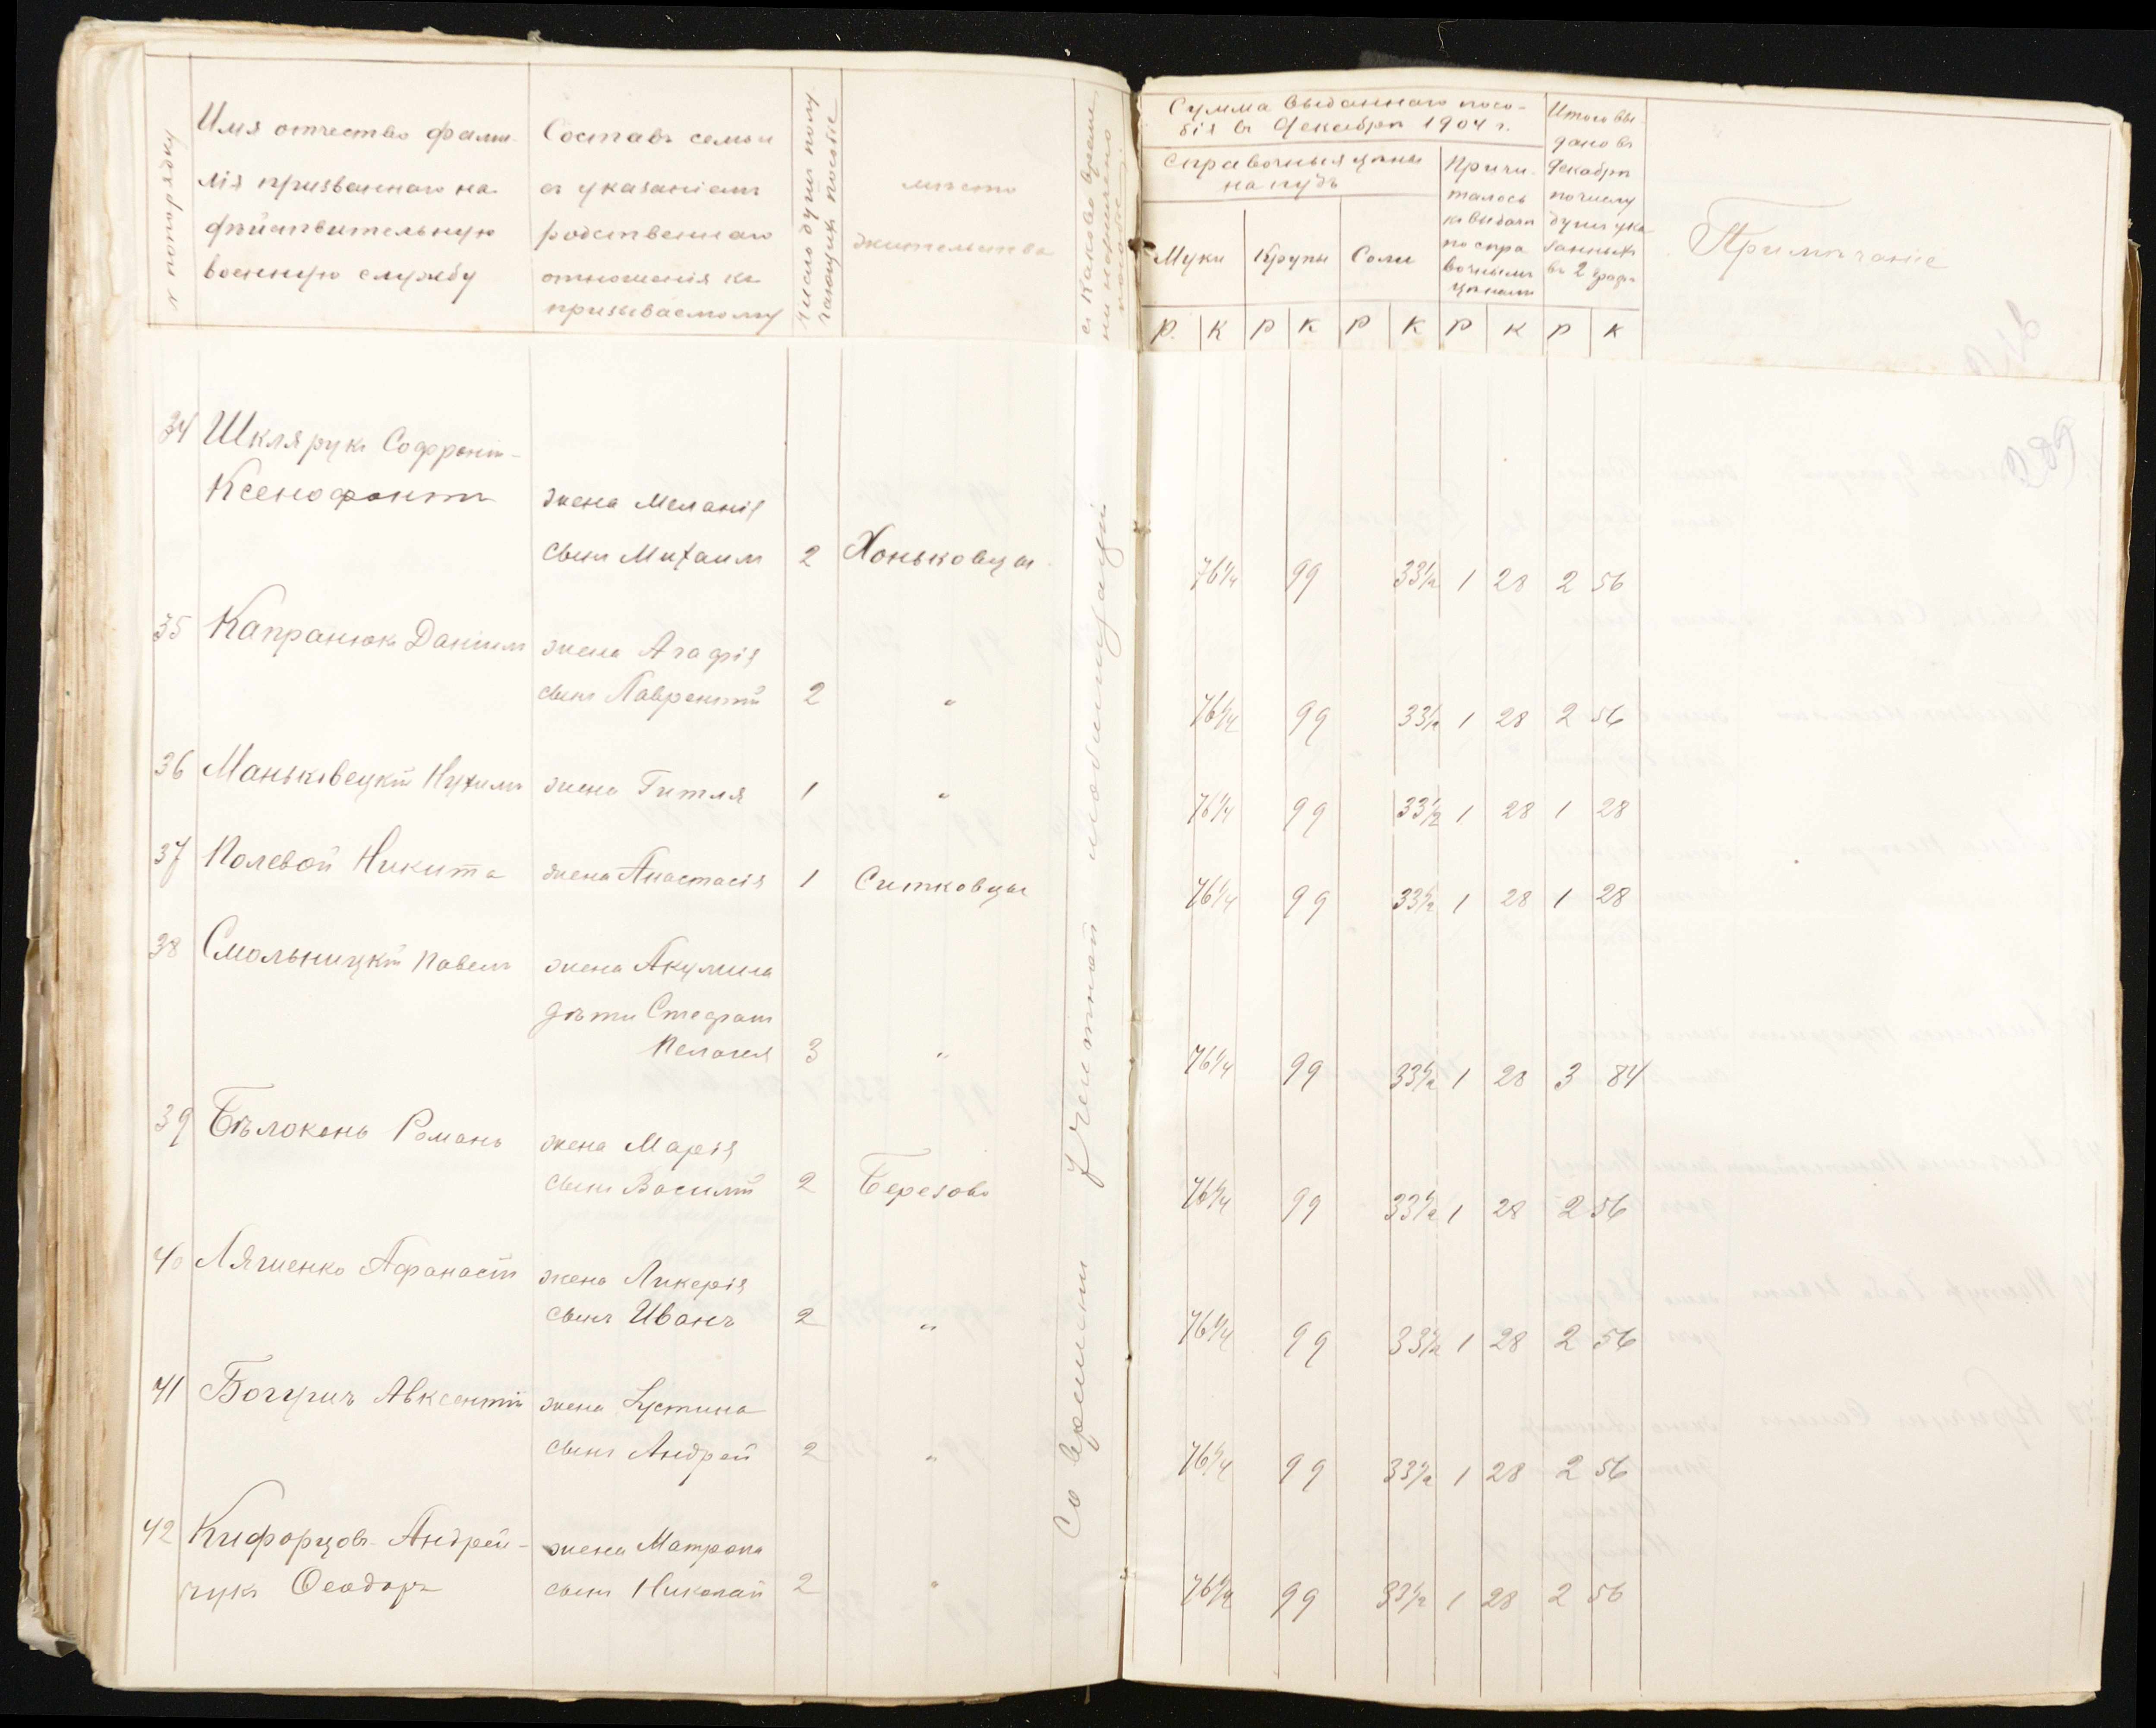 № по порядку
Имя отчество фами-
лія призваннаго на
дѣйствительную
военную службу
Составъ семьи
съ указаніемъ
родственнаго
отношенія къ
призываемому
число душъ полу
чающихъ пособіе
мѣсто
жительства
съ какова время
пособіе
Сумма выданнаго посо-
бія въ Декабрѣ 1904 г.
Справочныя цѣны
на пудъ
Муки Крупы Соли
Причи-
талось
къ выдачѣ
по спра
вочнымъ
цѣнамъ
Итого вы-
дано въ
Декабрѣ
по числу
душъ ука
занныхъ
въ 2 графѣ
Примѣчаніе
Р. К Р К Р К Р К Р К
289
Со времени учетной мобилизаціи
34 Шклярукъ Софронъ-
Ксенофонтъ жена Меланія
сынъ Михаилъ 2 Хоньковцы 76¼ 99 33½ 1 28 2 56
35 Капранюкъ Даніилъ жена Агафія
сынъ Лаврентій 2 " 76¼ 99 33½ 1 28 2 56
36 Маньковецкій Нухимъ жена Гитля 1 " 76¼ 99 33½ 1 28 1 28
37 Полевой Никита жена Анастасія 1 Ситковцы 76¼ 99 33½ 1 28 1 28
38 Смольницкій Павелъ жена Акулина
дѣти Стефанъ
Пелагия 3 " 76¼ 99 33½ 1 28 3 84
39 Бѣлоконь Романъ жена Марія
сынъ Василій 2 Березово 76¼ 99 33½ 1 28 2 56
40 Ляшенко Афанасій жена Ликерія
сынъ Иванъ 2 " 76¼ 99 33½ 1 28 2 56
41 Богучъ Авксентій жена Устина
сынъ Андрей 2 " 76¼ 99 33½ 1 28 2 56
42 Кифорцовъ-Андрей- жена Матрона
чукъ Ѳеодоръ сынъ Николай 2 " 76¼ 99 33½ 1 28 2 56